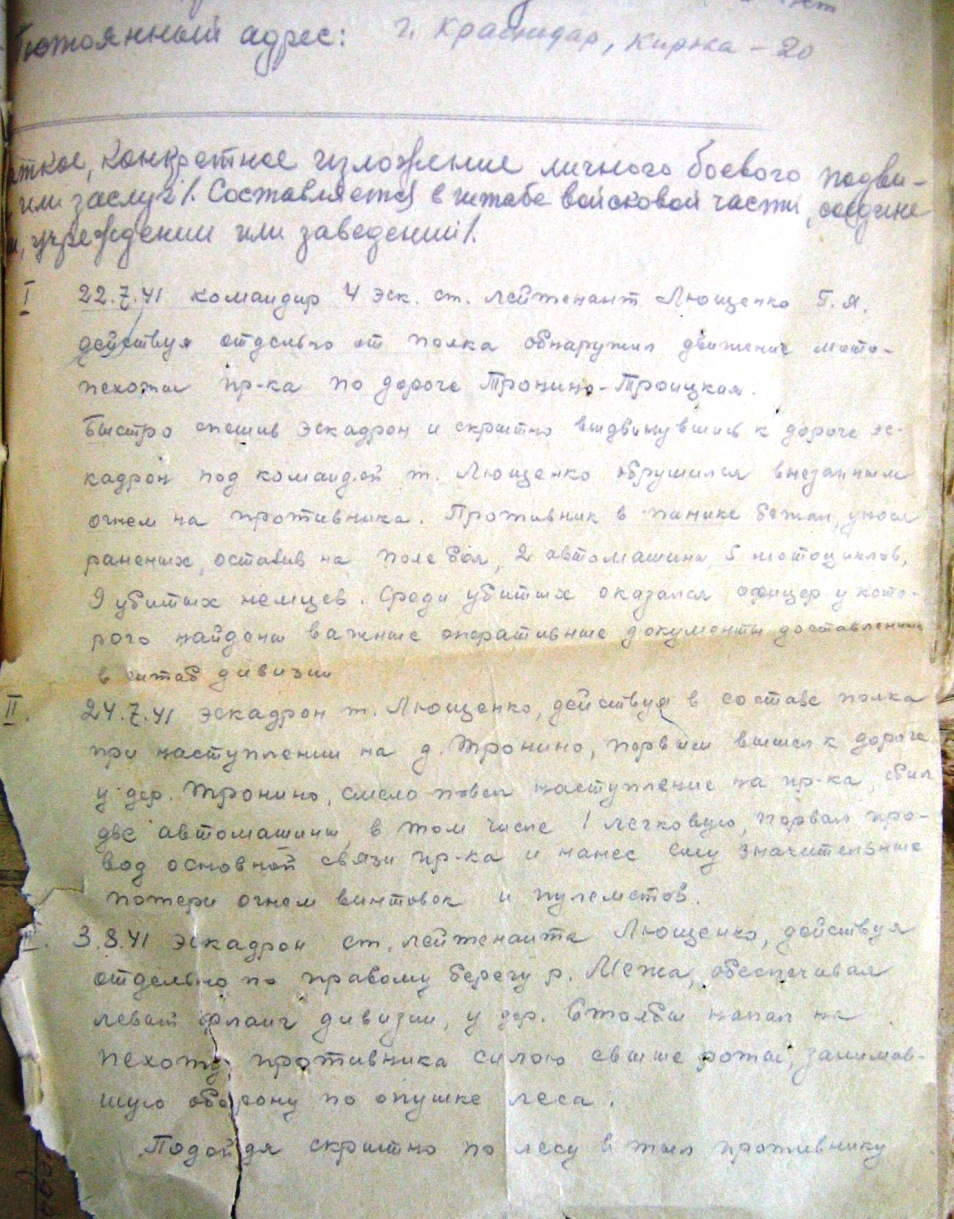 Постоянный адрес: г. Краснодар, Кирва - 20
аткое, конкретное изложение личного боевого подви-
, или заслуг/. Составляется в штабе войсковой части, соедине
и, учреждении или заведении/.
I 22.7.41 командир 4 эск. ст. лейтенант Лющенко Г. Я.
действуя отдельно от полка обнаружил движение мото-
пехоты пр-ка по дороге Тронино-Троицкая.
Быстро спешив эскадрон и скрытно выдвинувшись к дороге эс-
кадрон под командой т. Лющенко обрушился внезапным
огнем на противника. Противник в панике бежал, унося
раненых, оставив на поле боя, 2 автомашины, 5 мотоциклов,
9 убитых немцев. Среди убитых оказался офицер у кото-
рого найдены важные оперативные документы доставленные
в штаб дивизии
II. 24.7.41 эскадрон т. Лющенко, действуя в составе полка
при наступлении на д. Тронино, первым вышел к дороге
у дер. Тронино, смело повел наступление на пр-ка, сбил
две автомашины, в том числе 1 легковую, порвал про-
вод основной связи пр-ка и нанес ему значительные
потери огнем винтовок и пулеметов.
3.8.41 эскадрон ст. лейтенанта Лющенко, действуя
отдельно по правому берегу р. Межа, обеспечивая
левый фланг дивизии, у дер. Столбы напал на
пехоту противника силою свыше роты, занимав-
шую оборону по опушке леса.
Подойдя скрытно по лесу в тыл противнику